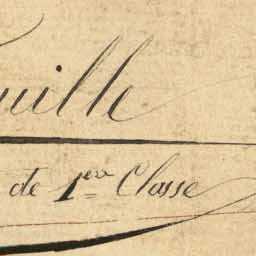 uille
de 1ère Classe